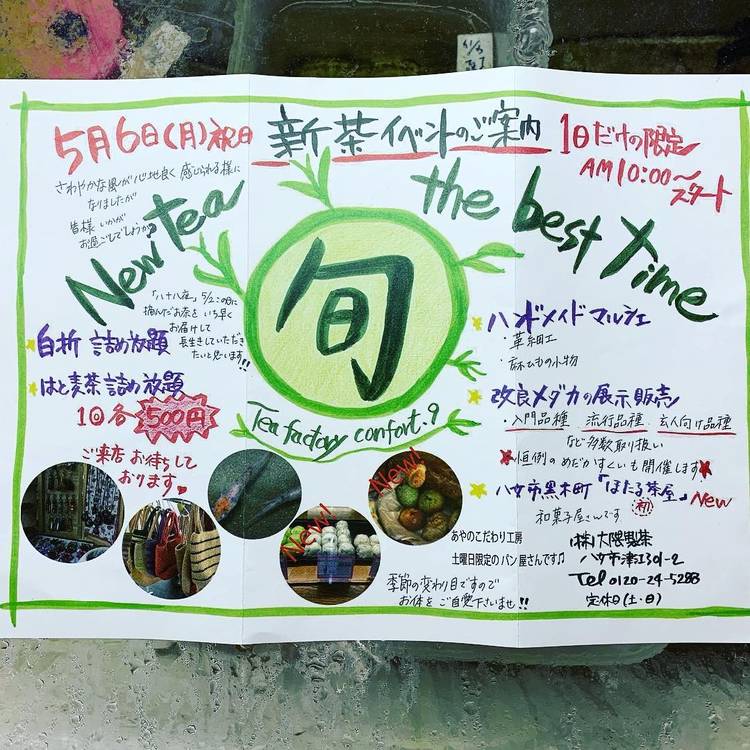 5月6日(月)祝日
新茶イベントのご案内
1日だけの限定
AM10:00〜
スタート
さわやかな風が心地良く感じられる様に
なりましたが
皆様いかが
お過ごしでしょうか?
New tea
the best Time
旬
Tea factory confort.9
「八十八夜」5/2この日に
摘んだお茶をいち早く
お届けして
長生きしていただき
たいと思います!!
白折 詰め放題
はと麦茶詰め放題
1回各500円
ご来店お待ちして
おります
ハンドメイドマルシェ
・革細工
・麻ひもの小物
改良メダカの展示販売
・入門品種 流行品種 玄人向け品種
など多数取り扱い
恒例のめだかすくいも開催します
八女市黒木町「ほたる茶屋」New
初
和菓子屋さんです
New!
New!
あやのこだわり工房
土曜日限定のパン屋さんです♫
季節の変わり目ですので
お体をご自愛下さいませ!!
(株)大隈製茶
八女市津江301-2
Tel 0120-24-5288
定休日(土・日)